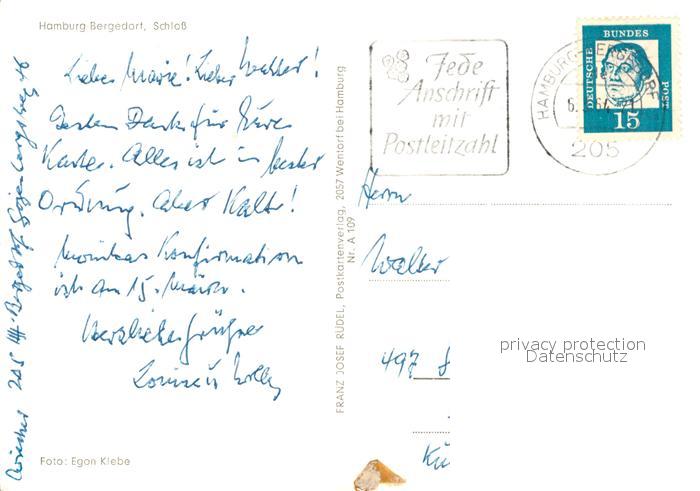 Hamburg Bergedorf, Schloß
Liebe Marie! Lieber Walter!
Besten Dank für Eure
Karte. Alles ist in bester
Ordnung. Aber Kalt!
Monikas Konfirmation
ist am 15. März.
Herzliche Grüße
Louise u. Willy
205 HH-Bergedorf
Foto: Egon Klebe
FRANZ JOSEF RÜDEL, Postkartenverlag, 2057 Wentorf bei Hamburg
Nr. A 109
Jede
Anschrift
mit
Postleitzahl
HAMBURG-BERGEDORF
205
DEUTSCHE BUNDES POST
15
Herrn
Walter
497
privacy protection
Datenschutz